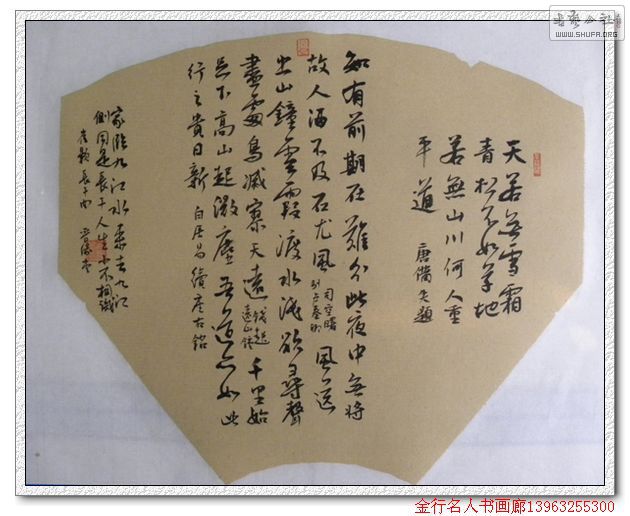 天若無雪霜
青松不如草地
若無山川何人重
平道 唐備失題
知有前期在難分此夜中無將
故人酒不及石尤風 司空曙 別盧秦卿 風送
出山鐘雲霞渡水淺欲尋聲
盡處鳥滅寥天遠 錢起 遠山鐘 千里始
足下高山起微塵吾道亦如此
行之貴日新 白居易續座右銘
家臨九江水來去九江
側同是長干人生小不相識
崔顥長干曲
WWW.SHUFA.ORG
金行名人书画廊13963255300